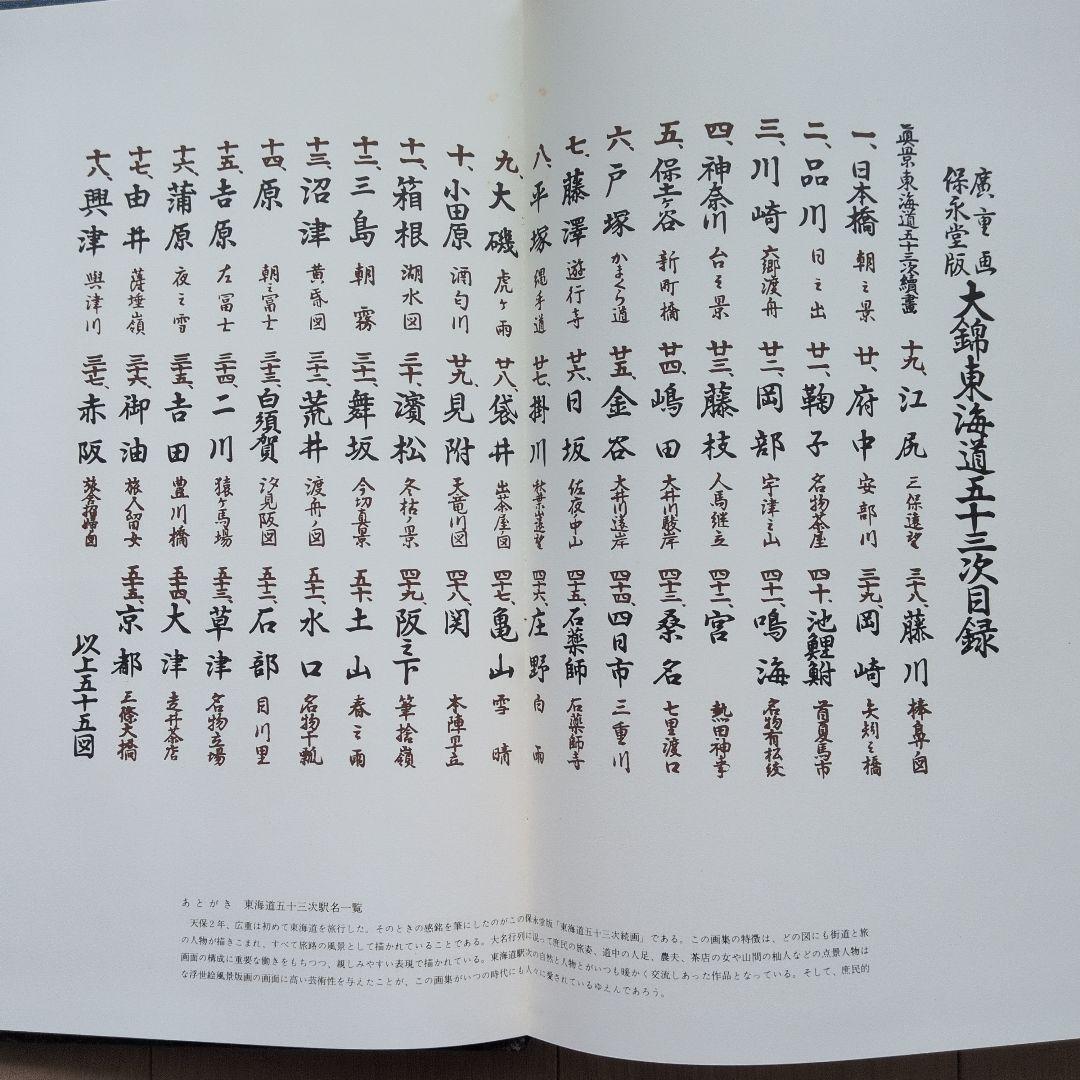 廣重画
保永堂版
大錦東海道五十三次目録
眞景東海道五十三次續畫
一、日本橋 朝之景
二、品川 日之出
三、川崎 六郷渡舟
四、神奈川 台之景
五、保土ヶ谷 新町橋
六、戸塚 かまくら道
七、藤澤 遊行寺
八、平塚 縄手道
九、大磯 虎ヶ雨
十、小田原 酒匂川
十一、箱根 湖水図
十二、三島 朝霧
十三、沼津 黄昏図
十四、原 朝之冨士
十五、吉原 左冨士
十六、蒲原 夜之雪
十七、由井 薩埵嶺
十八、興津 興津川
十九、江尻 三保遠望
廿、府中 安部川
廿一、鞠子 名物茶屋
廿二、岡部 宇津之山
廿三、藤枝 人馬継立
廿四、嶋田 大井川駿岸
廿五、金谷 大井川遠岸
廿六、日坂 佐夜中山
廿七、掛川 秋葉山遠望
廿八、袋井 出茶屋ノ図
廿九、見附 天竜川図
三十、濱松 冬枯ノ景
三十一、舞坂 今切真景
三十二、荒井 渡舟ノ図
三十三、白須賀 汐見阪図
三十四、二川 猿ヶ馬場
三十五、吉田 豊川橋
三十六、御油 旅人留女
三十七、赤阪 旅舎招婦ノ図
三十八、藤川 棒鼻ノ図
三十九、岡崎 矢矧之橋
四十、池鯉鮒 首夏馬市
四十一、鳴海 名物有松絞
四十二、宮 熱田神事
四十三、桑名 七里渡口
四十四、四日市 三重川
四十五、石薬師 石薬師寺
四十六、庄野 白雨
四十七、亀山 雪晴
四十八、関 本陣早立
四十九、阪之下 筆捨嶺
五十、土山 春之雨
五十一、水口 名物干瓢
五十二、石部 目川里
五十三、草津 名物立場
五十四、大津 走井茶店
五十五、京都 三條大橋
以上五十五図
あとがき 東海道五十三次駅名一覧
天保２年、広重は初めて東海道を旅行した。そのときの感銘を筆にしたのがこの保永堂版「東海道五十三次続画」である。この画集の特徴は、どの図にも街道と旅
の人物が描きこまれ、すべて旅路の風景として描かれていることである。大名行列に混って庶民の旅姿、道中の人足、農夫、茶店の女や山間の杣人などの点景人物は
画面の構成に重要な働きをもちつつ、親しみやすい表現で描かれている。東海道駅次の自然と人物とがいつも暖かく交流しあった作品となっている。そして、庶民的
な浮世絵風景版画の画面に高い芸術性を与えたことが、この画集がいつの時代にも人々に愛されているゆえんであろう。